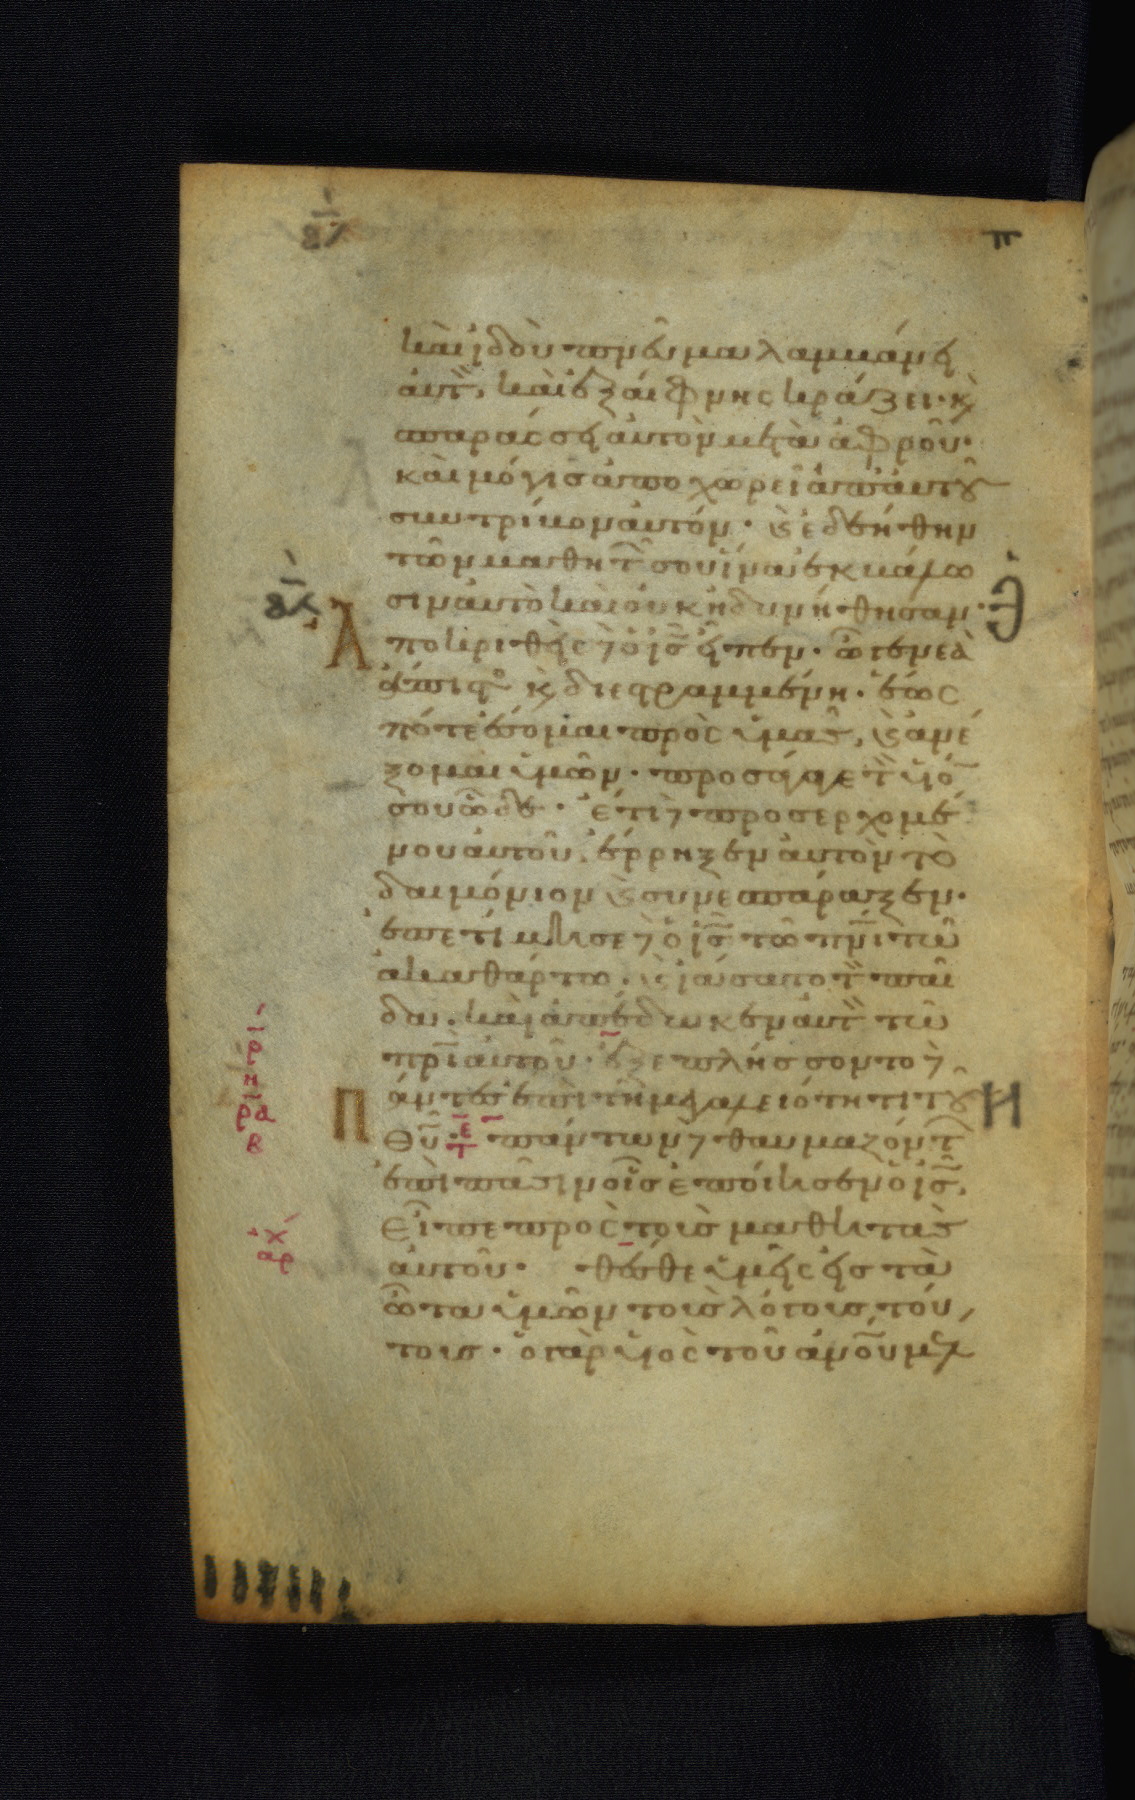 καὶ ἰδοὺ πνεῦμα λαμβάνει
αὐτ̀, καὶ ἐξαίφνης κράζει· κ̀
σπαράσσει αὐτὸν μετὰ ἀφροῦ·
καὶ μόγισ ἀποχωρεῖ ἀπ᾽ αὐτοῦ
συντρίβον αὐτόν· κ̀ ἐδεήθην
τῶν μαθητ̑ σου ἵνα ἐκβάλω
σιν αὐτὸ καὶ οὐκ ἠδυνήθησαν·
Αποκριθεὶς δ̀ ὁ ις̅ εἶπεν· ὦ γενεὰ
ἄπιστο κ̀ διεστραμμένη· ἕως
πότε ἔσομαι πρὸς ὑμᾶς, κ̀ ἀνέ
ξομαι ὑμῶν· προσάγαγε τ̀ υἱό̅
σου ὧδε· ἔτι δ̀ προσερχομέ
νου αὐτοῦ, ἔρρηξεν αὐτὸν τὸ
δαιμόνιον κ̀ συνεσπάραξεν·
ἐπετίμησε δ̀ ὁ ις̅ τῶ πν̅ι τῶ
ἀκαθάρτω· κ̀ ἰάσατο τ̀ παῖ
δα· καὶ ἀπέδωκεν αὐτ̀ τῶ
πρ̅ι αὐτοῦ· ἐξεπλήσσοντο δ̀
Πάντες ἐπὶ τῆ μεγαλειότητι τοῦ
θυ̅· πάντων δ̀ θαυμαζόντ̅
ἐπὶ πᾶσιν οἷσ ἐποίησεν ὁ ις̅,
εἶπε πρὸς τοὺσ μαθητὰσ
αὐτοῦ· θέσθε ὑμεῖς εἰσ τὰ
ὦτα ὑμῶν τοὺσ λόγουσ τού
τουσ· ὁ γὰρ υἱὸς τοῦ ἀνο̅υ μέλ